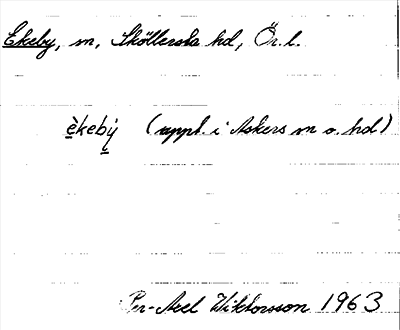 Ekeby, m, Sköllersta hd, Ör. l.
èkebý (uppt. i Askers sn o. hd)
Per-Axel Wiktorsson 1963